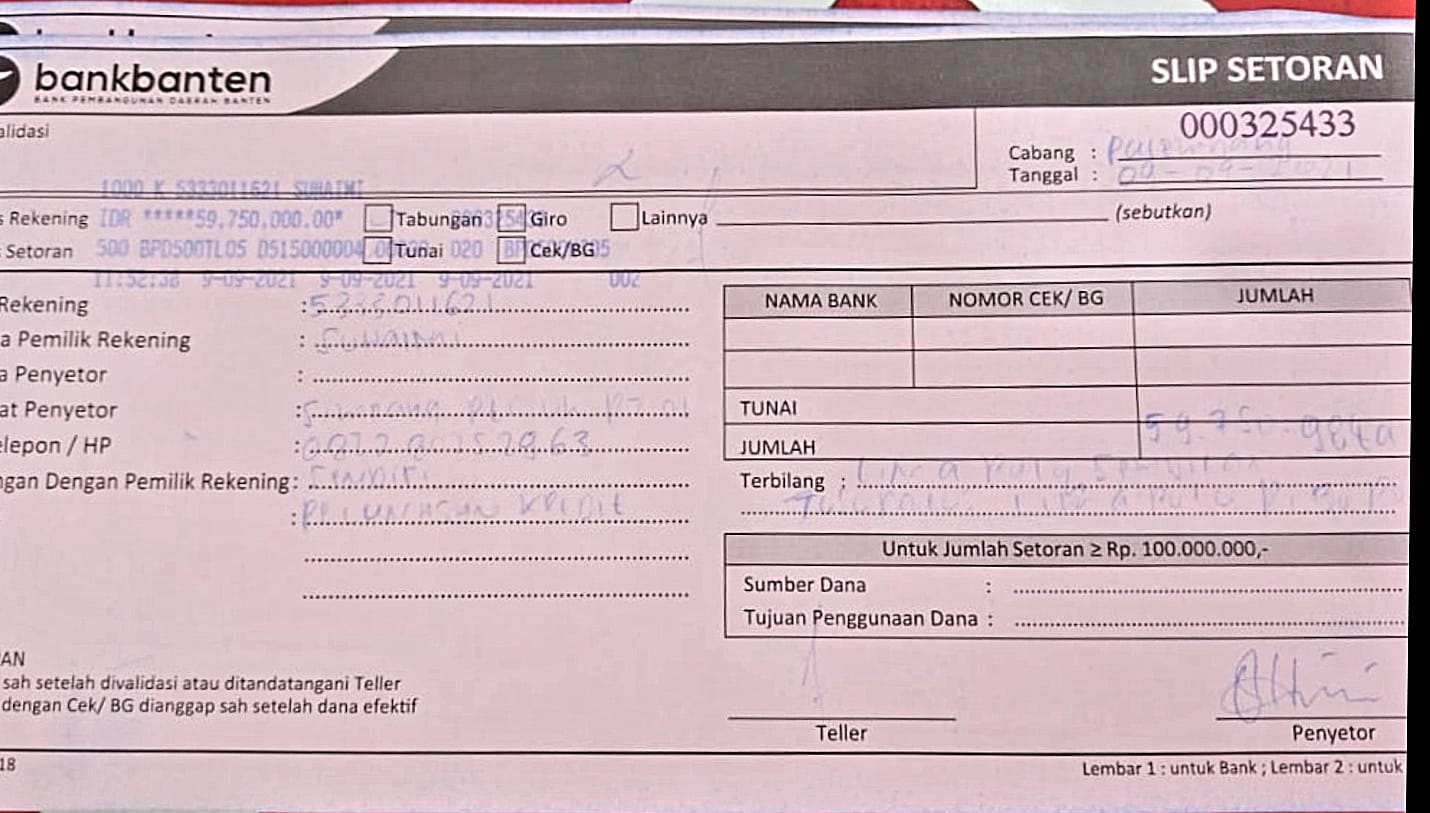 bankbanten
BANK PEMBANGUNAN DAERAH BANTEN
SLIP SETORAN
alidasi
000325433
Cabang :
Tanggal : 09-09-2021
1000 K 5333011621 SUHAIMI
s Rekening IDR *****59,750,000.00* Tabungan Giro Lainnya (sebutkan)
Setoran 500 BPD500TL05 0515000004 Tunai 020 Cek/BG
11:52:38 9-09-2021 9-09-2021 9-09-2021 002
Rekening : 5333011621
a Pemilik Rekening : Suhaimi
a Penyetor :
at Penyetor :
elepon / HP :
ngan Dengan Pemilik Rekening : Sendiri
: Pelunasan Kredit
NAMA BANK NOMOR CEK/ BG JUMLAH
TUNAI
JUMLAH 59.750.
Terbilang : Lima Pulu Sembilan
Lima Pulu
Untuk Jumlah Setoran ≥ Rp. 100.000.000,-
Sumber Dana :
Tujuan Penggunaan Dana :
AN
sah setelah divalidasi atau ditandatangani Teller
dengan Cek/ BG dianggap sah setelah dana efektif
Teller
Penyetor
18
Lembar 1 : untuk Bank ; Lembar 2 : untuk